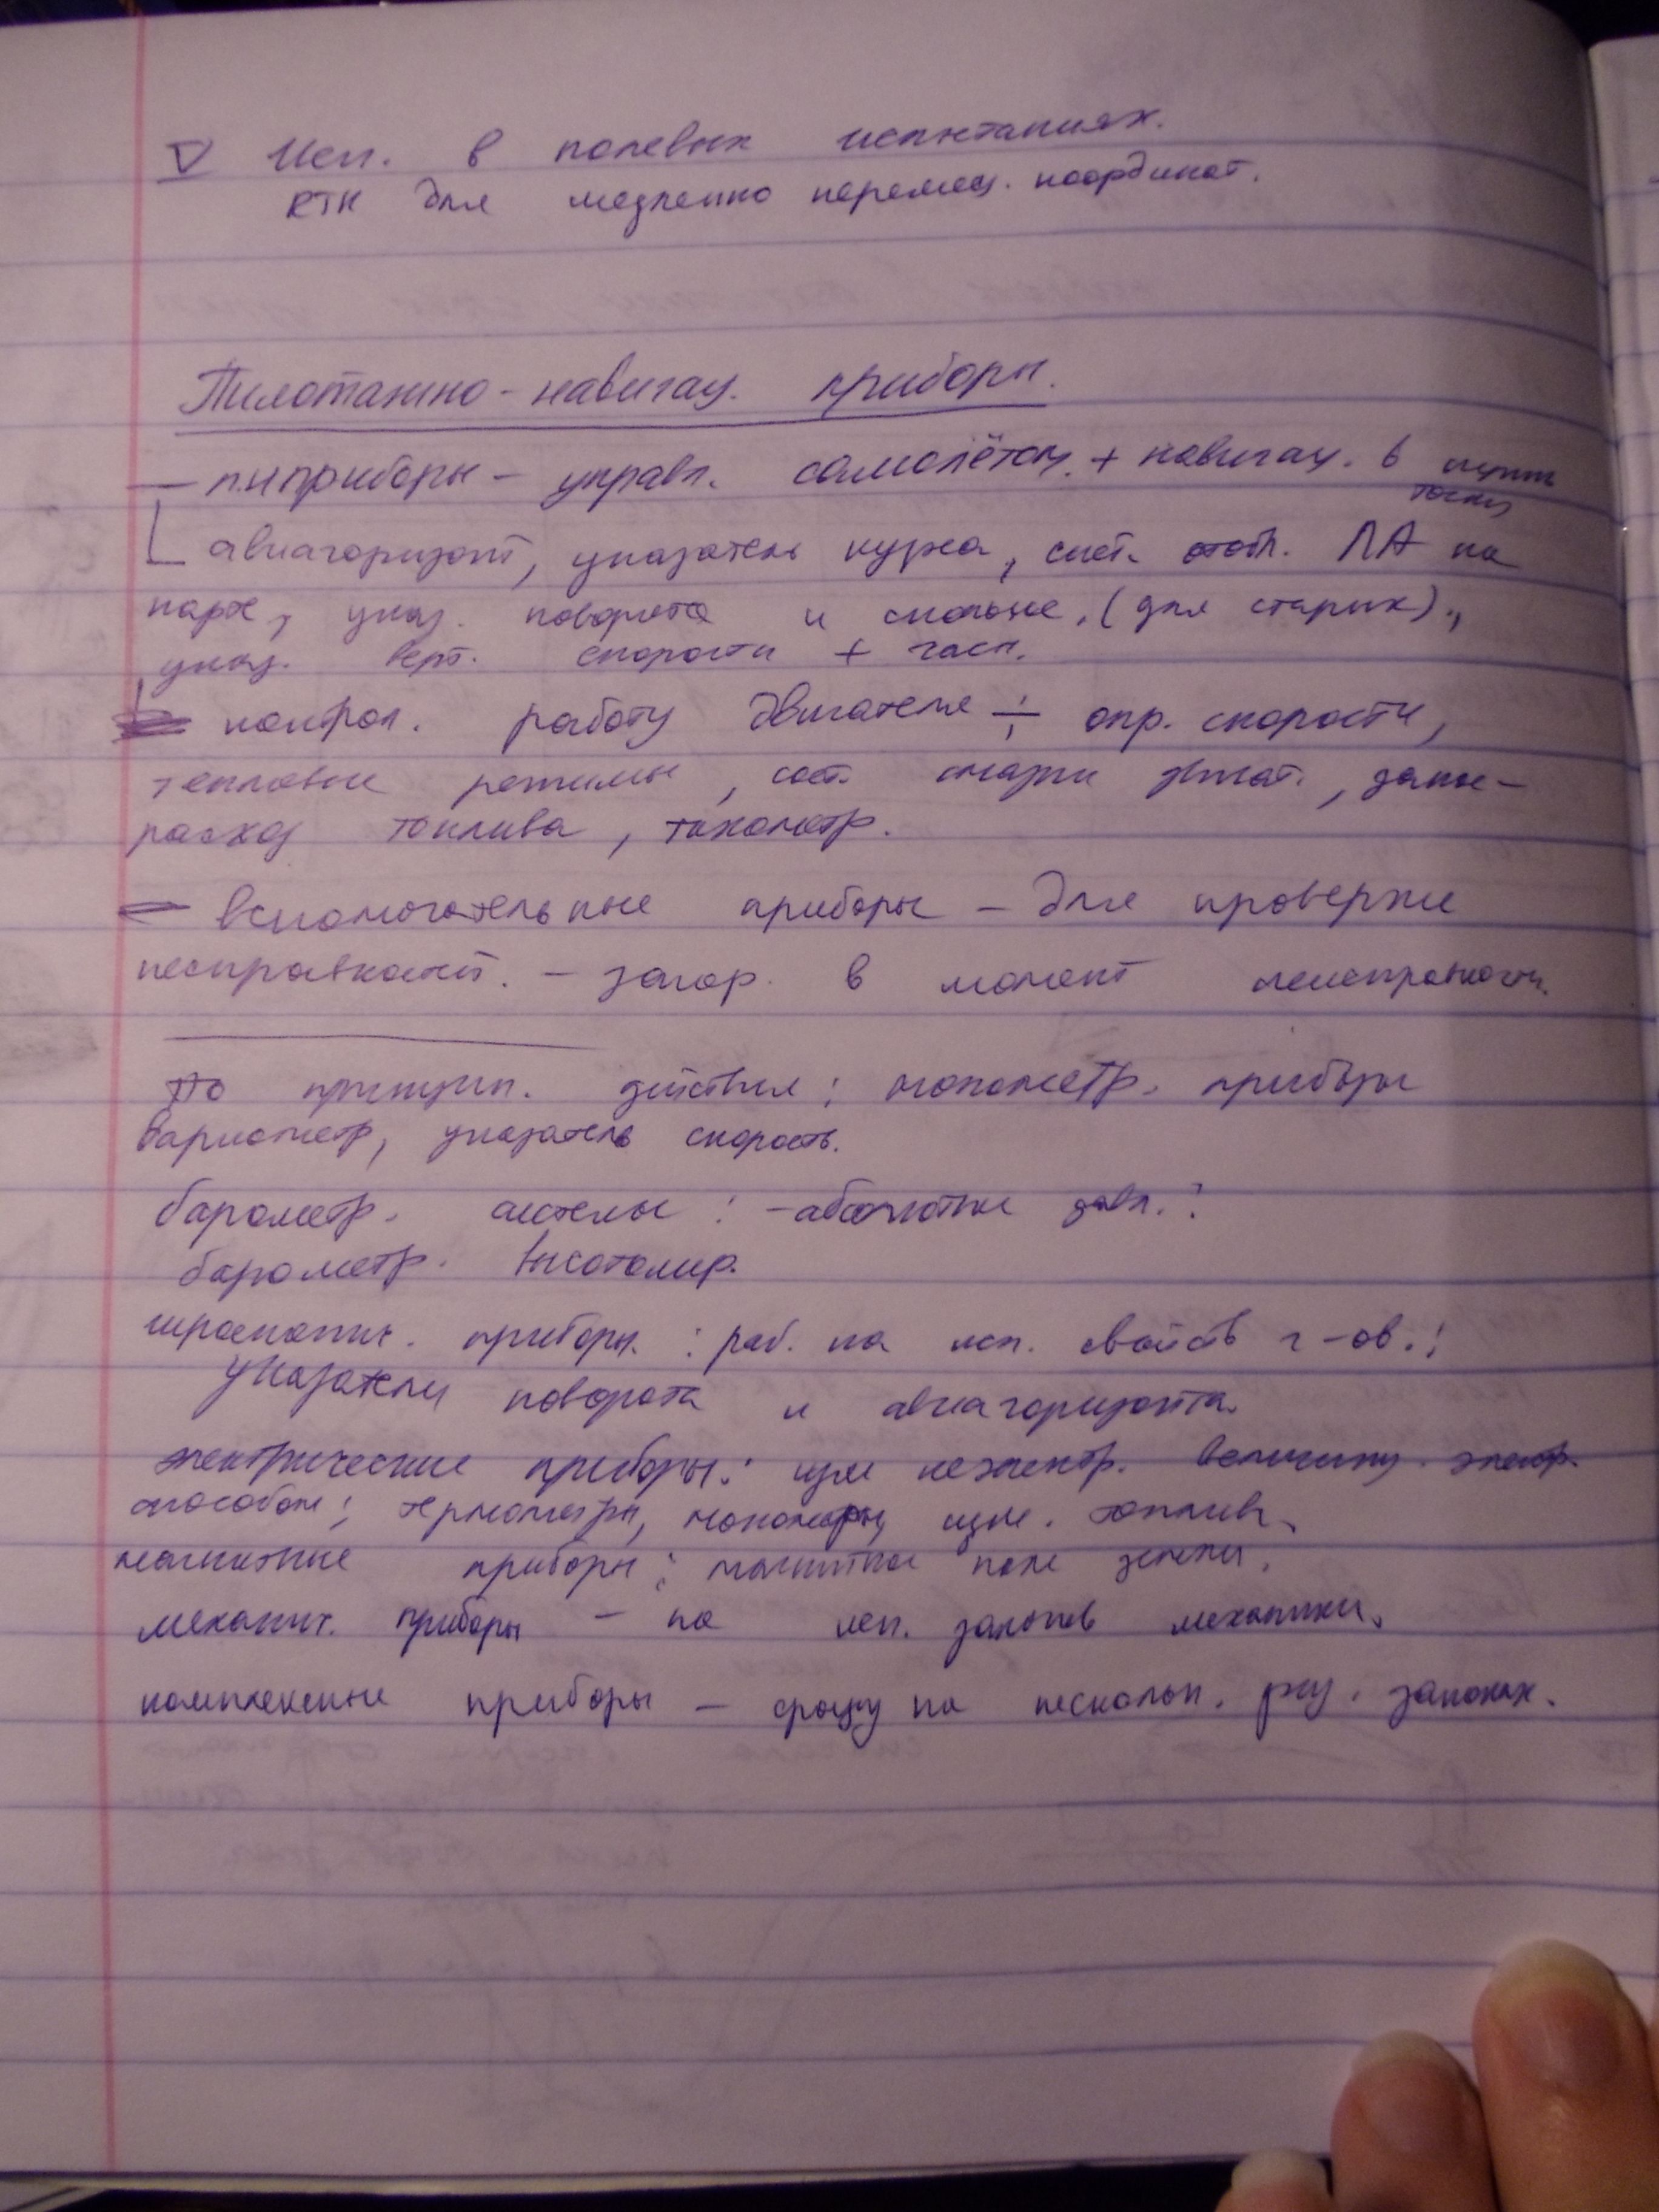 V Исп. в полевых испытаниях.
RTK для медленно перемещ. координат.
Пилотажно-навигац. приборы.
— п.н приборы – управл. самолётом. + навигац. в пункт
точку
авиагоризонт, указатель курса, сист. отобр. ЛА на
карте, указ. поворота и скольже. (для старых).,
указ. верт. скорости + часы.
контрол. работу двигателя ÷ опр. скорости,
тепловые режимы, сост. смазки двигат., запас-
расход топлива, тахометр.
– вспомогательные приборы – для проверки
неисправност. – загор. в момент неисправности.
По принцип. действия: манометр. приборы
вариометр, указатель скорость.
барометр. системы: -абсолютные давл.:
барометр. высотомер.
гироскопич. приборы. : раб. на исп. свойств г-ов.:
указатели поворота и авиагоризонта.
электрические приборы: изм неэлектр. величину. электр.
способом; термометры, манометры, изм. топлив.
магнитные приборы: магнитное поле земли.
механич. приборы – на исп. законов механики.
комплексные приборы – сразу на нескольк. физ. законах.